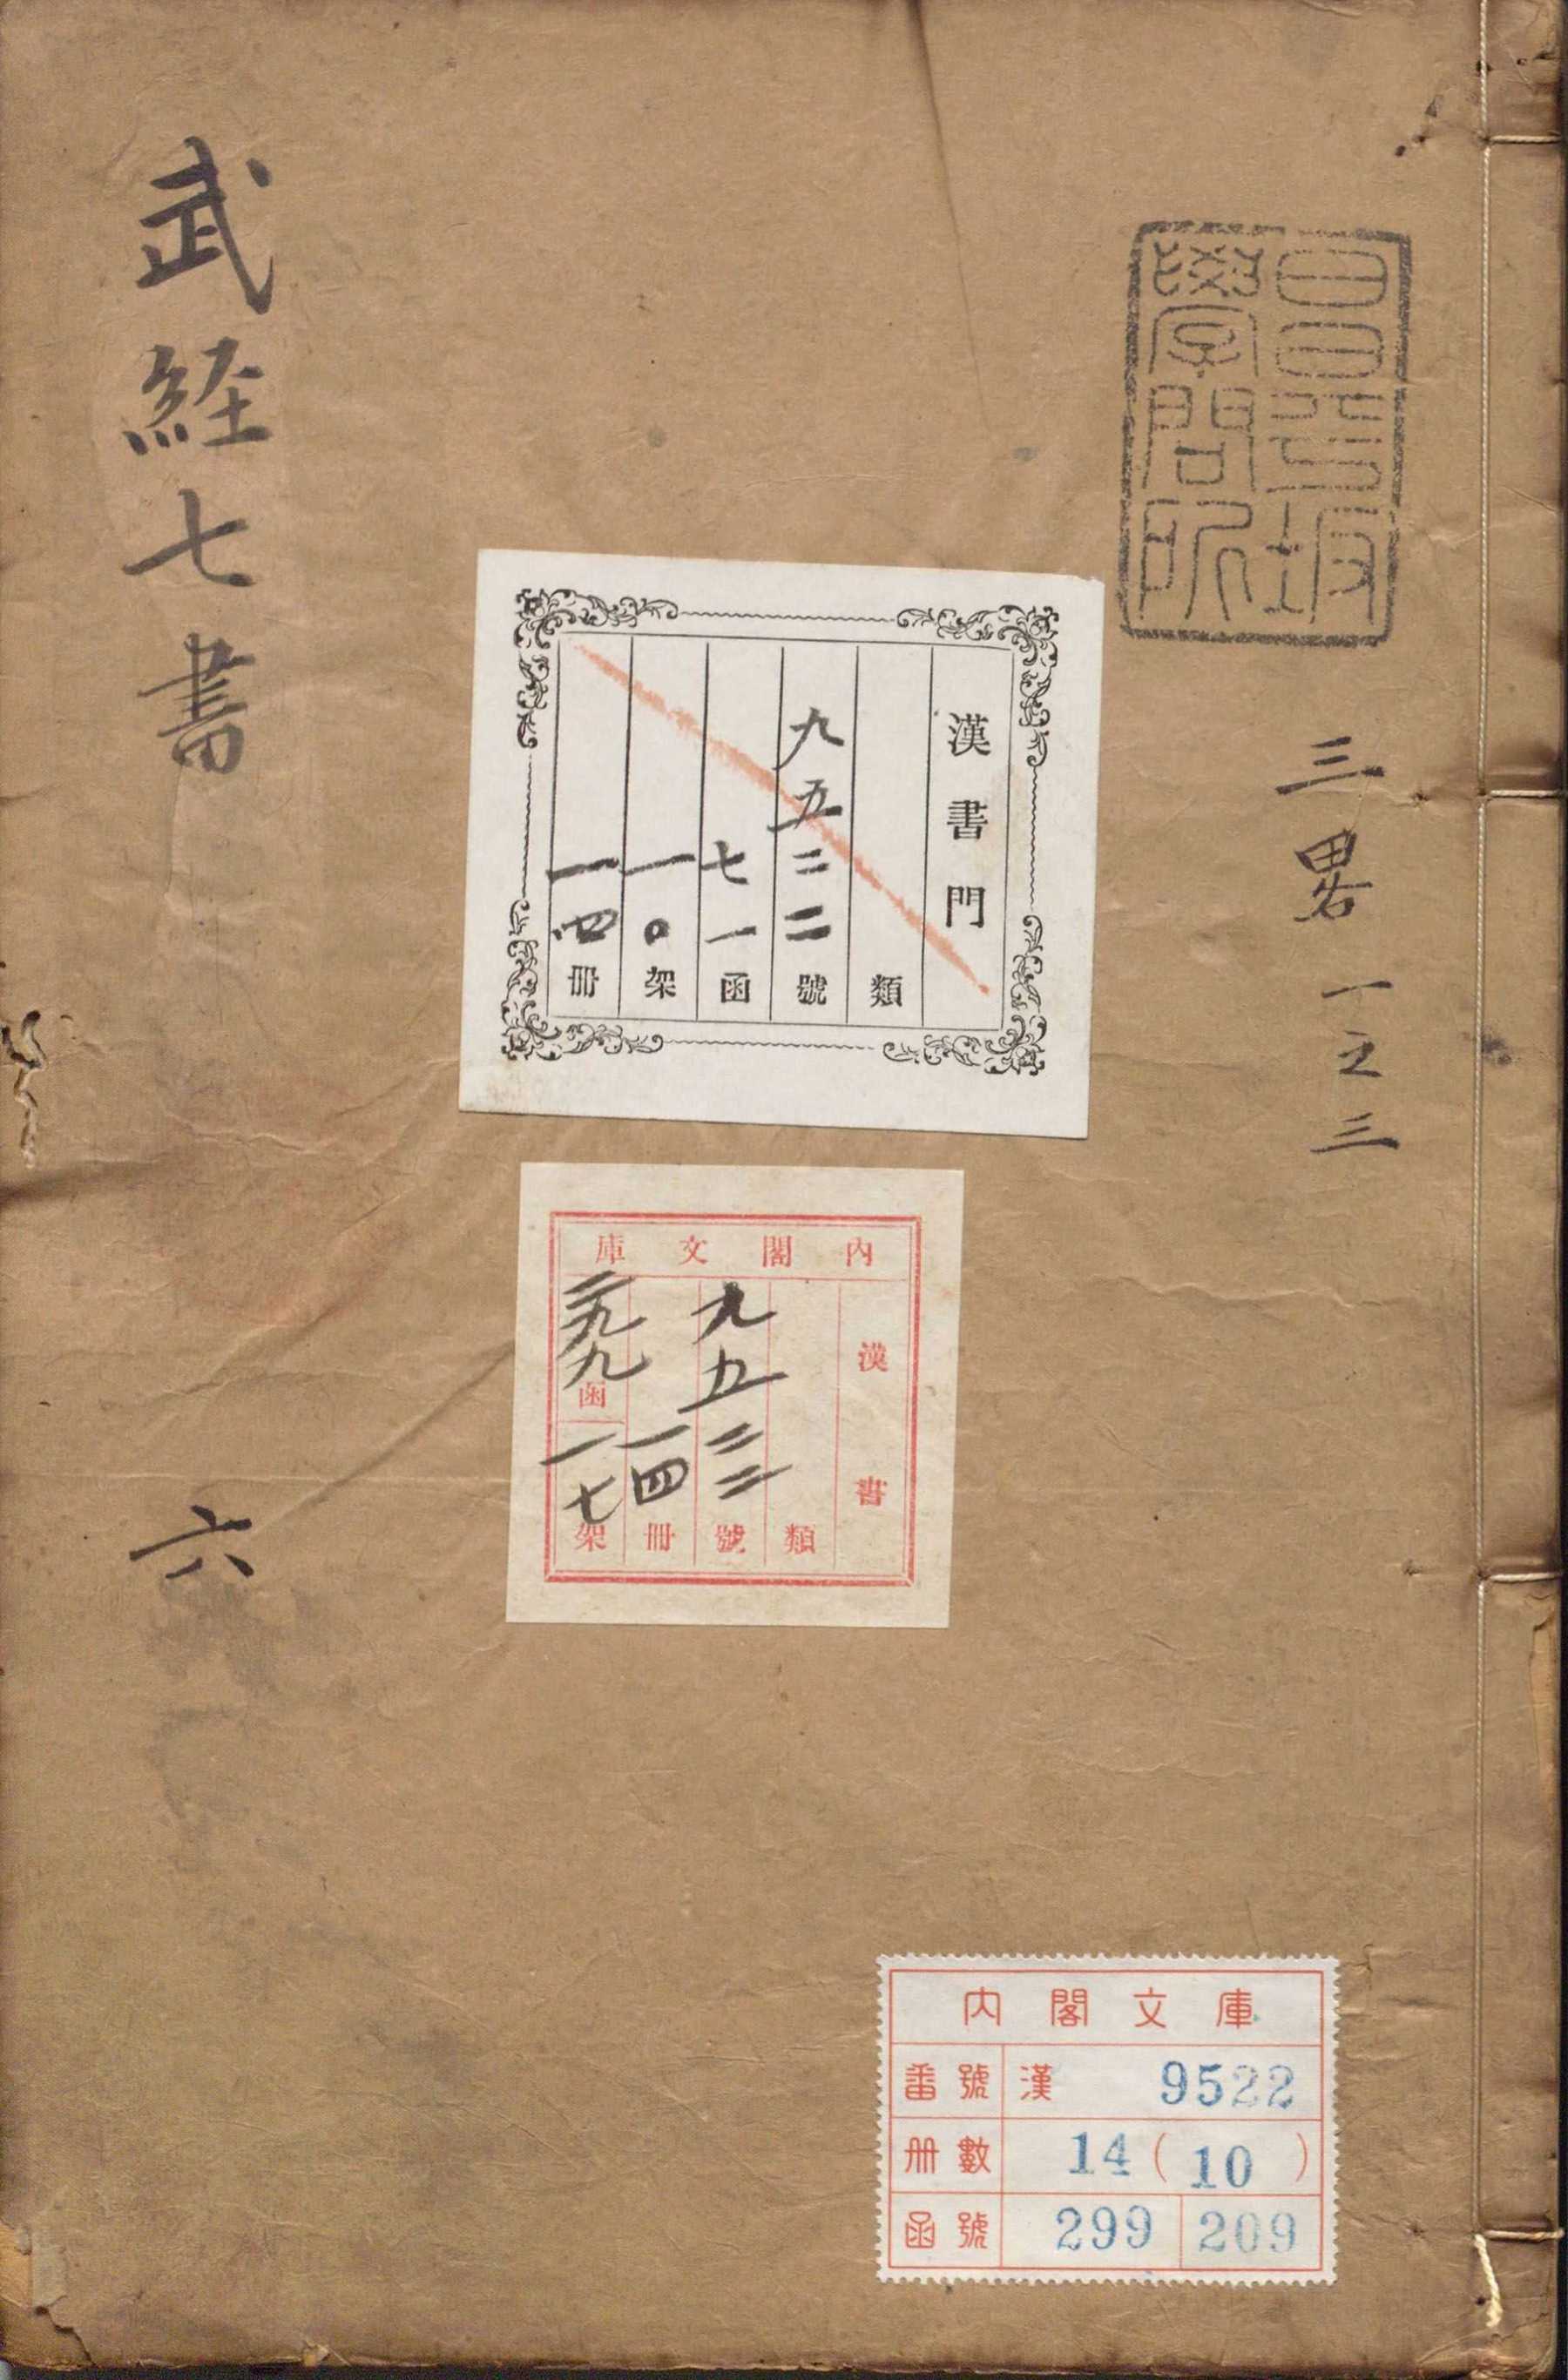 昌平坂
學問所
三畧 一之三
漢書門
類
九五二二號
七一函
一〇架
一四冊
內閣文庫
漢書
類
九五二二號
一四冊
二九九函
一七架
武経七書 六
內閣文庫
番號 漢 9522
冊數 14(10)
函號 299 209